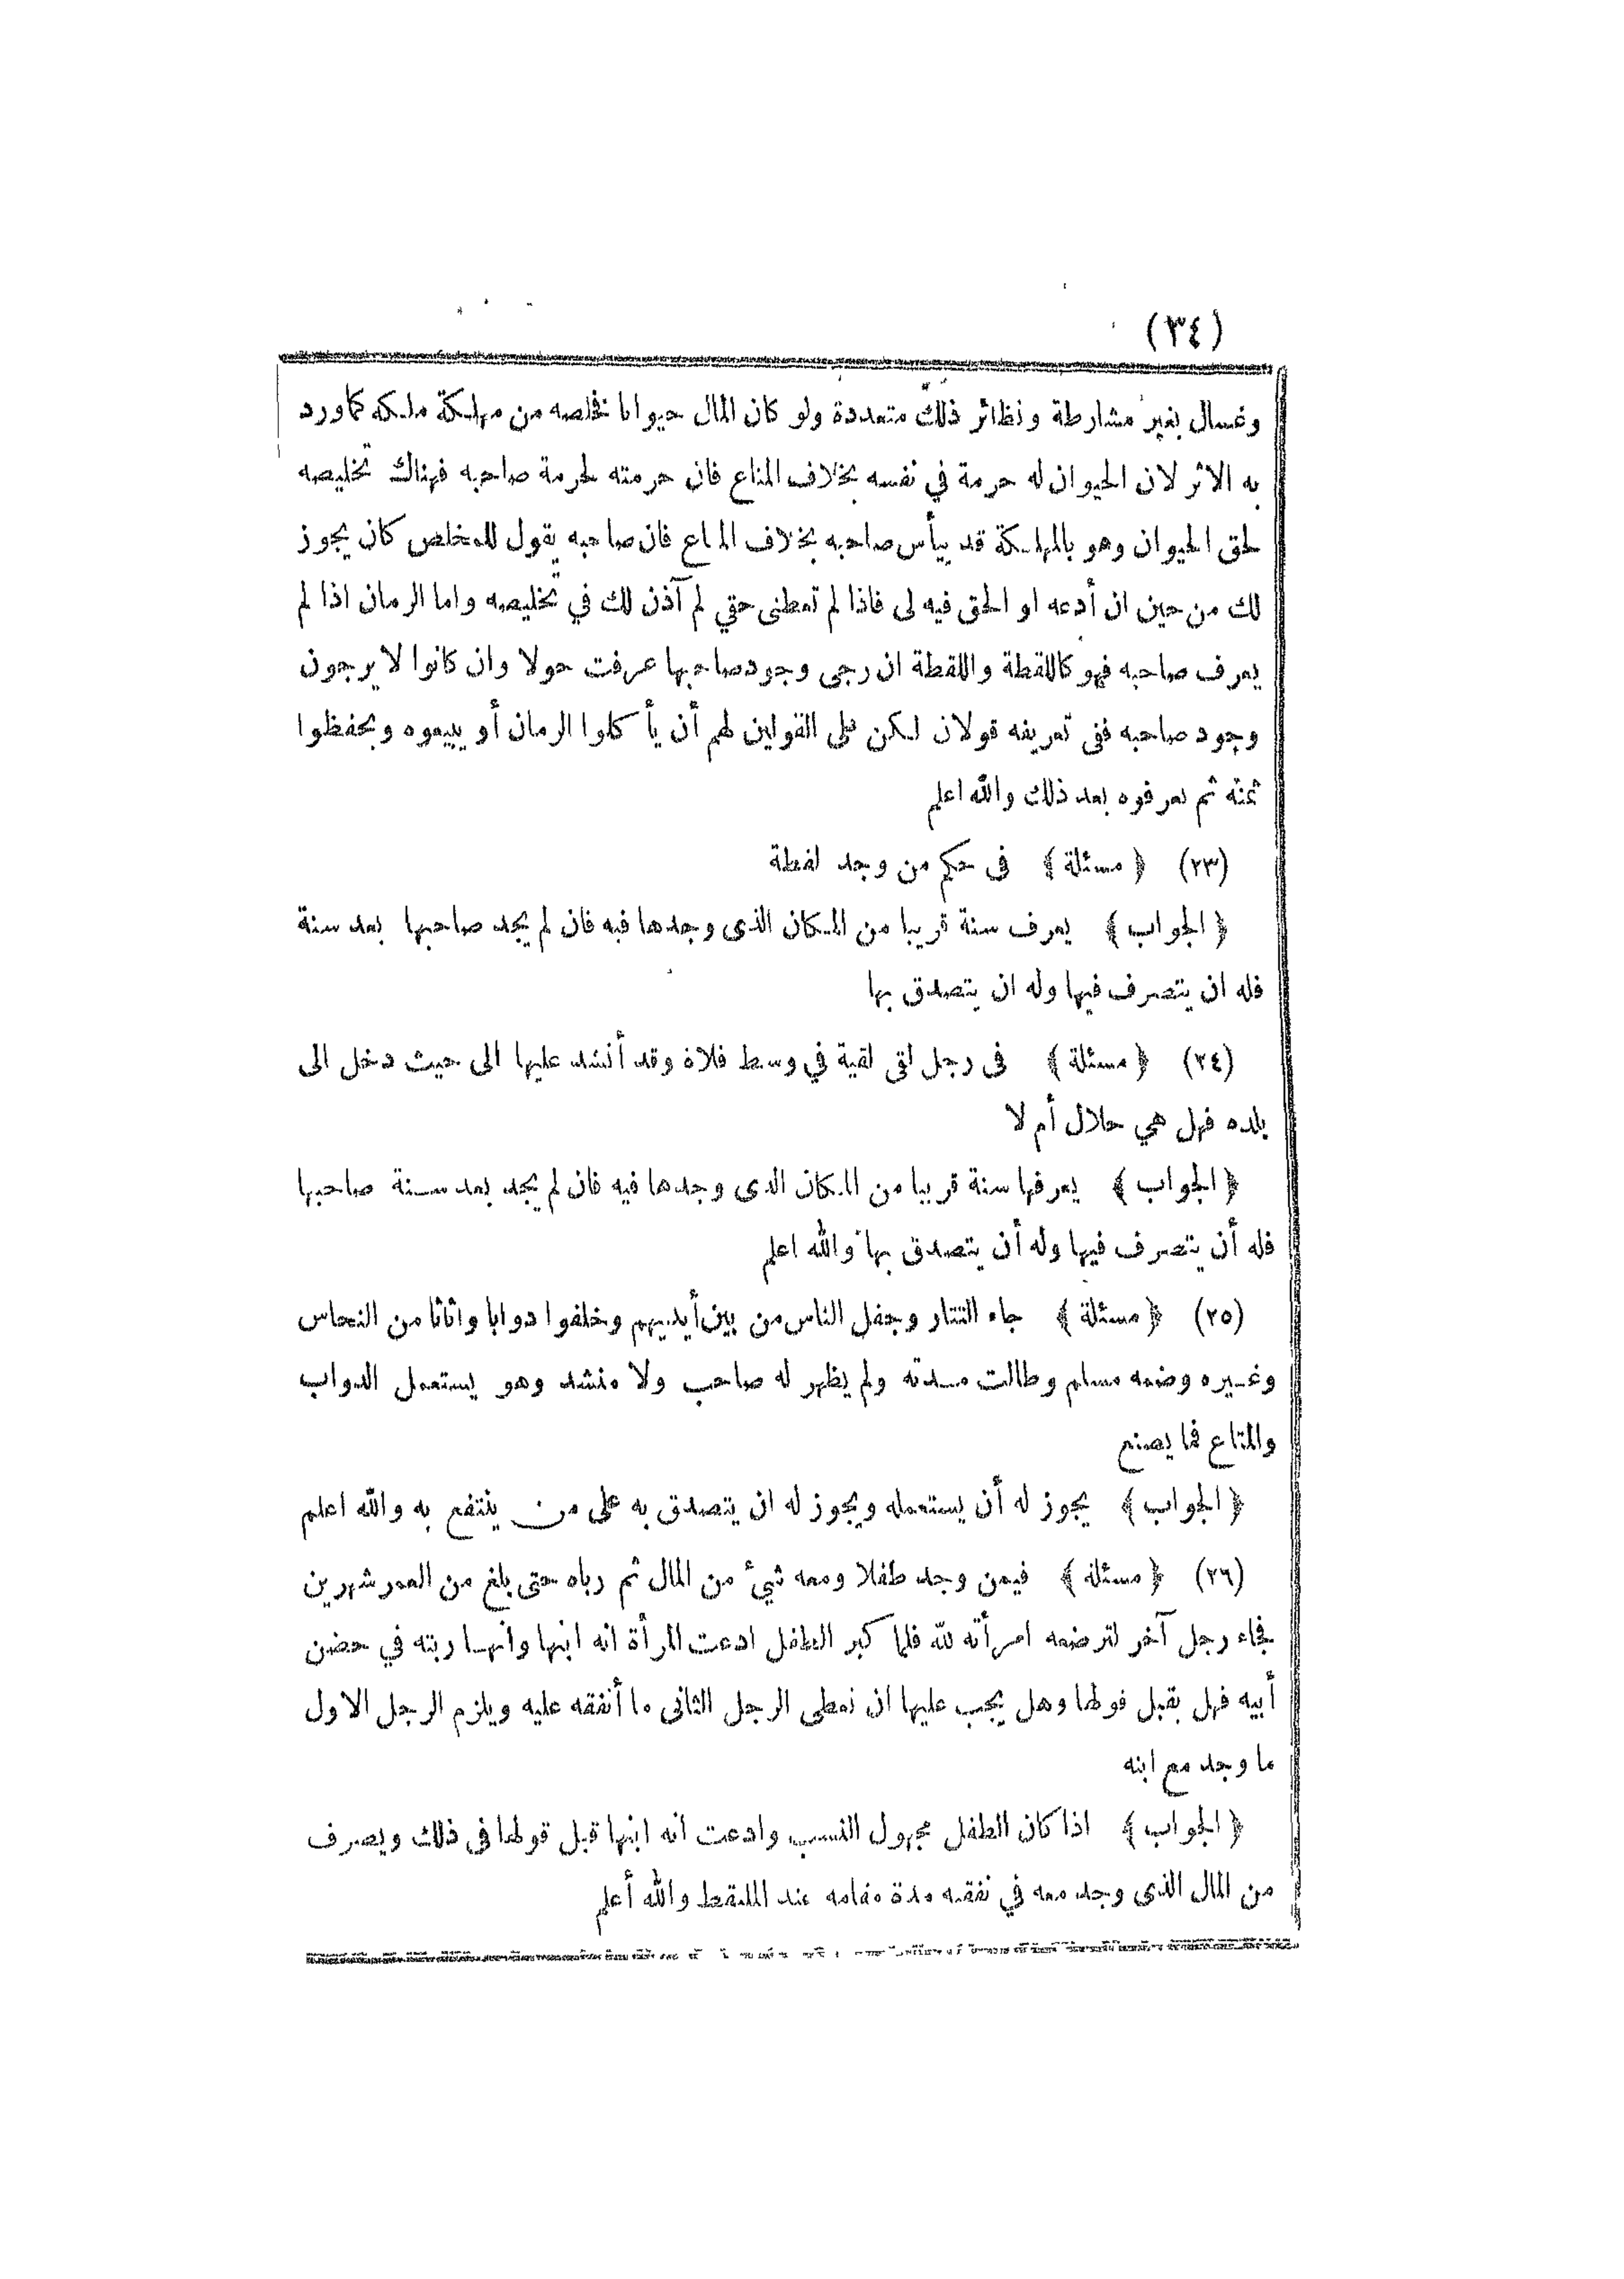 (٣٤)
وغسال بغير مشارطة ونظائر ذلك متعددة ولو كان المال حيوانا فخلصه من مهلكة ملكه كما ورد
به الاثر لان الحيوان له حرمة في نفسه بخلاف المتاع فان حرمته لحرمة صاحبه فهناك تخليصه
لحق الحيوان وهو بالمهلكة قد ييأس صاحبه بخلاف المتاع فان صاحبه يقول للمخلص كان يجوز
لك من حين ان أدعه او الحق فيه لى فاذا لم تعطنى حقي لم آذن لك في تخليصه واما الرمان اذا لم
يعرف صاحبه فهو كاللقطة واللقطة ان رجى وجود صاحبها عرفت حولا وان كانوا لا يرجون
وجود صاحبه ففى تعريفه قولان لكن على القولين لهم أن يأكلوا الرمان أو يبيعوه ويحفظوا
ثمنه ثم يعرفوه بعد ذلك والله اعلم
(٢٣) ﴿ مسئلة ﴾ فى حكم من وجد لقطة
﴿ الجواب ﴾ يعرف سنة قريبا من المكان الذى وجدها فيه فان لم يجد صاحبها بعد سنة
فله ان يتصرف فيها وله ان يتصدق بها
(٢٤) ﴿ مسئلة ﴾ فى رجل لقى لقية في وسط فلاة وقد أنشد عليها الى حيث دخل الى
بلده فهل هي حلال أم لا
﴿ الجواب ﴾ يعرفها سنة قريبا من المكان الذى وجدها فيه فان لم يجد بعد سنة صاحبها
فله أن يتصرف فيها وله أن يتصدق بها والله اعلم
(٢٥) ﴿ مسئلة ﴾ جاء التتار وجفل الناس من بين أيديهم وخلفوا دوابا واثاثا من النحاس
وغيره وضمه مسلم وطالت مدته ولم يظهر له صاحب ولا منشد وهو يستعمل الدواب
والمتاع فما يصنع
﴿ الجواب ﴾ يجوز له أن يستعمله ويجوز له ان يتصدق به على من ينتفع به والله اعلم
(٢٦) ﴿ مسئلة ﴾ فيمن وجد طفلا ومعه شيء من المال ثم رباه حتى بلغ من العمر شهرين
فجاء رجل آخر لترضعه امرأته لله فلما كبر الطفل ادعت المرأة انه ابنها وانها ربته في حضن
أبيه فهل يقبل قولها وهل يجب عليها ان تعطى الرجل الثانى ما أنفقه عليه ويلزم الرجل الاول
ما وجد مع ابنه
﴿ الجواب ﴾ اذا كان الطفل مجهول النسب وادعت أنه ابنها قبل قولها فى ذلك ويصرف
من المال الذى وجد معه في نفقته مدة مقامه عند الملتقط والله أعلم